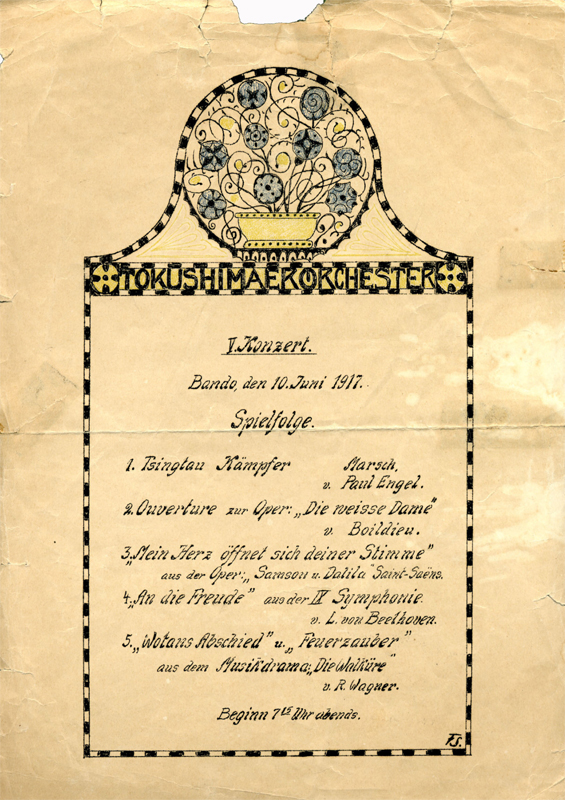 TOKUSHIMAER ORCHESTER
V. Konzert.
Bando, den 10. Juni 1917.
Spielfolge.
1. Tsingtau Kämpfer Marsch,
v. Paul Engel.
2. Ouverture zur Oper: „Die weisse Dame"
v. Boildieu.
3. „Mein Herz öffnet sich deiner Stimme"
aus der Oper: „Samson u. Dalila" Saint-Saëns.
4. „An die Freude" aus der IX Symphonie.
v. L. von Beethoven.
5. „Wotans Abschied" u. „Feuerzauber"
aus dem Musikdrama: „Die Walküre"
v. R. Wagner.
Beginn 7¹⁵ Uhr abends.